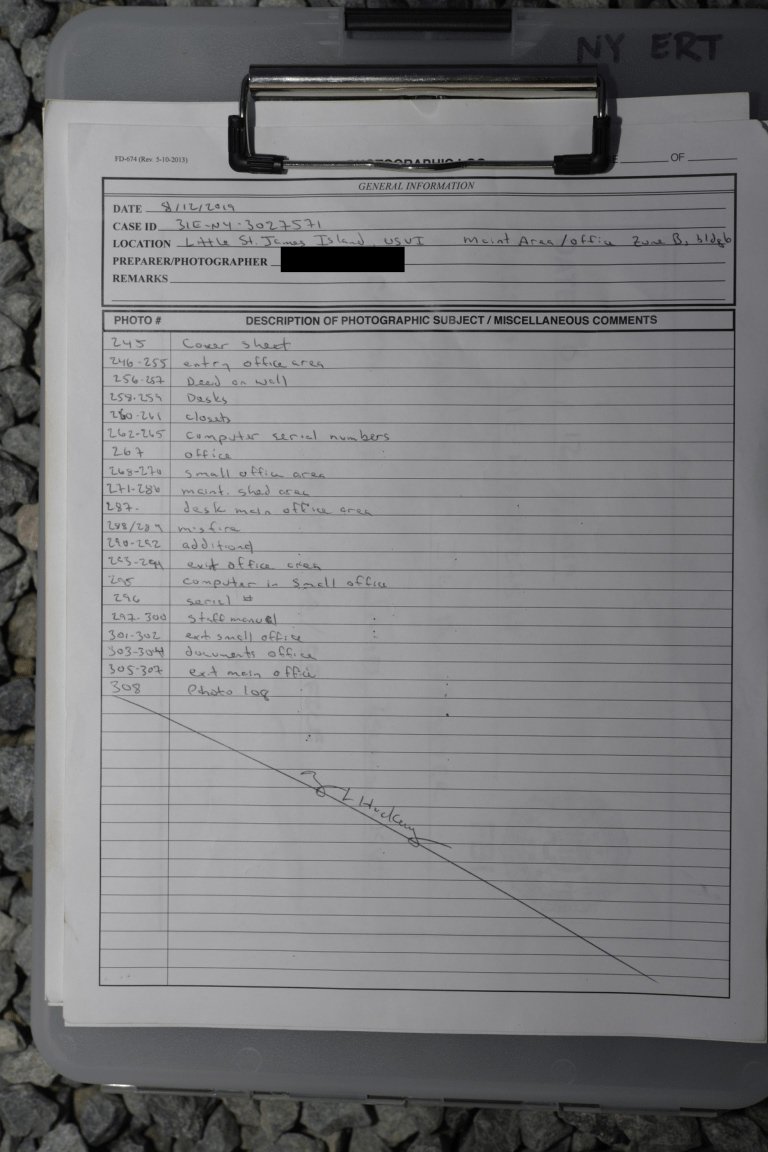 NY ERT
FD-674 (Rev. 5-10-2013)
PHOTOGRAPHIC LOG
OF
GENERAL INFORMATION
DATE 8/12/2019
CASE ID 31E-NY-3027571
LOCATION Little St. James Island, USVI Maint Area/office Zone B, bldg 6
PREPARER/PHOTOGRAPHER
REMARKS
PHOTO # DESCRIPTION OF PHOTOGRAPHIC SUBJECT / MISCELLANEOUS COMMENTS
245 Cover sheet
246-255 entry office area
256-257 Deed on wall
258-259 Desks
260-261 closets
262-265 computer serial numbers
267 office
268-270 small office area
271-286 maint. shed area
287- desk main office area
288/289 misfire
290-292 additional
293-294 exit office area
295 computer in small office
296 serial #
297-300 staff manual
301-302 ext small office
303-304 documents office
305-307 ext main office
308 Photo log